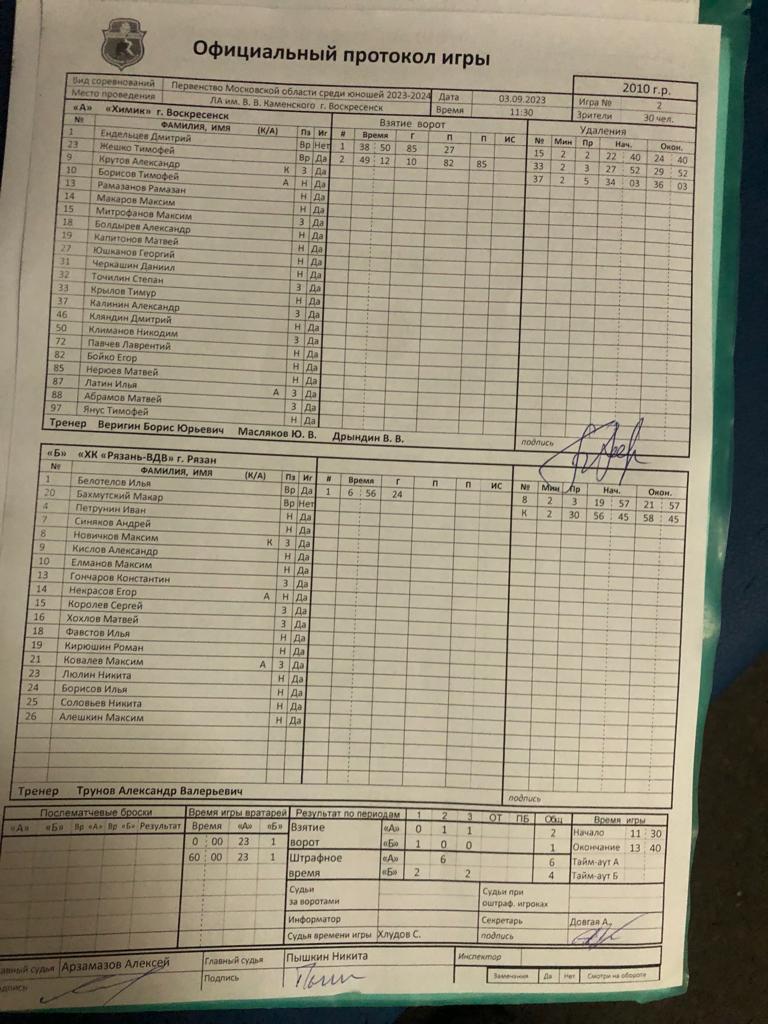 Официальный протокол игры
Вид соревнований Первенство Московской области среди юношей 2023-2024 2010 г.р.
Место проведения ЛА им. В. В. Каменского г. Воскресенск Дата 03.09.2023 Игра № 2
Время 11:30 Зрители 30 чел.
«А» «Химик» г. Воскресенск Взятие ворот Удаления
№ ФАМИЛИЯ, ИМЯ (К/А) Пз Иг # Время Г П П ИС № Мин Пр Нач. Окон.
1 Ендельцев Дмитрий Вр Нет 1 38 50 85 27 15 2 2 22 40 24 40
23 Жешко Тимофей Вр Да 2 49 12 10 82 85 33 2 3 27 52 29 52
9 Крутов Александр К З Да 37 2 5 34 03 36 03
10 Борисов Тимофей А Н Да
13 Рамазанов Рамазан Н Да
14 Макаров Максим Н Да
15 Митрофанов Максим З Да
18 Болдырев Александр Н Да
19 Капитонов Матвей Н Да
27 Юшканов Георгий Н Да
31 Черкашин Даниил Н Да
32 Точилин Степан З Да
33 Крылов Тимур Н Да
37 Калинин Александр З Да
46 Кляндин Дмитрий Н Да
50 Климанов Никодим З Да
72 Павчев Лаврентий Н Да
82 Бойко Егор Н Да
85 Нерюев Матвей Н Да
87 Латин Илья А З Да
88 Абрамов Матвей З Да
97 Янус Тимофей Н Да
Тренер Веригин Борис Юрьевич Масляков Ю. В. Дрындин В. В. подпись
«Б» «ХК «Рязань-ВДВ» г. Рязан
№ ФАМИЛИЯ, ИМЯ (К/А) Пз Иг # Время Г П П ИС № Мин Пр Нач. Окон.
1 Белотелов Илья Вр Да 1 6 56 24 8 2 3 19 57 21 57
20 Бахмутский Макар Вр Нет К 2 30 56 45 58 45
4 Петрунин Иван Н Да
7 Синяков Андрей Н Да
8 Новичков Максим К З Да
9 Кислов Александр Н Да
10 Елманов Максим Н Да
13 Гончаров Константин З Да
14 Некрасов Егор А Н Да
15 Королев Сергей З Да
16 Хохлов Матвей З Да
18 Фавстов Илья Н Да
19 Кирюшин Роман Н Да
21 Ковалев Максим А З Да
23 Люлин Никита Н Да
24 Борисов Илья Н Да
25 Соловьев Никита Н Да
26 Алешкин Максим Н Да
Тренер Трунов Александр Валерьевич подпись
Послематчевые броски Время игры вратарей Результат по периодам 1 2 3 ОТ ПБ Общ Время игры
«А» «Б» Вр «А» Вр «Б» Результат Время «А» «Б» Взятие ворот «А» 0 1 1 2 Начало 11 30
0 00 23 1 «Б» 1 0 0 1 Окончание 13 40
60 00 23 1 Штрафное время «А» 6 6 Тайм-аут А
«Б» 2 2 4 Тайм-аут Б
Судьи за воротами Судьи при оштраф. игроках
Информатор Секретарь Довгая А.,
Судья времени игры Хлудов С. подпись
авный судья Арзамазов Алексей Главный судья Пышкин Никита Инспектор
дпись Подпись Замечания Да Нет Смотри на обороте